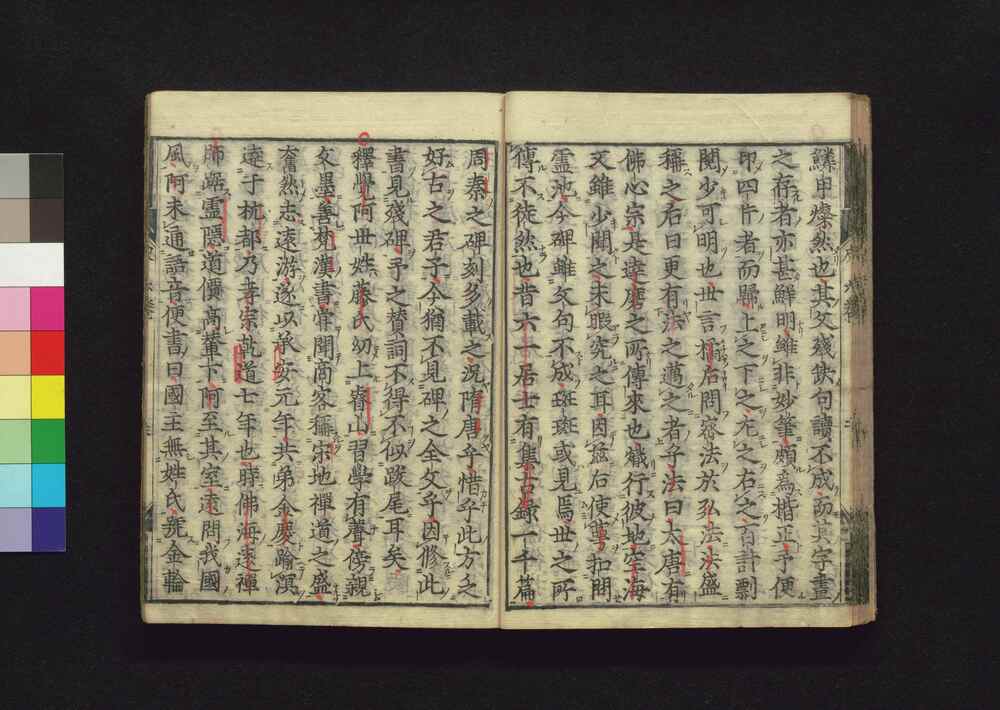 鱗甲燦然也其文殘缺句讀不成而其字畫
之存者亦甚鮮明雖非妙筆頗為楷正予便
印四片者而歸上之下之左之右之百計剽
閱少可明也世言橘后問密法於弘法法盛
稱之右曰更有法之邁之者乎法曰太唐有
佛心宗其達磨之所傳來也熾行彼地空海
又雖少聞之未暇究之耳因茲后使蕚扣問
靈池今碑雖文句不成斑斑或見焉世之所
傳不徒然也昔六一居士有集古錄一千篇
周秦之碑刻多載之況隋唐乎惜乎此方乏
好古之君子今猶不見碑之全文乎因修此
書見殘碑予之贊詞不得不似跋尾耳矣
釋覺阿世姓藤氏幼上睿山習學有聲傍親
文墨善梵漢書常聞商客稱宋地禪道之盛
奮然志遠游遂以承安元年共弟金慶踰溟
達于杭都乃孝宗乾道七年也時佛海遠禪
師踞靈隱道價高輦下阿至其室遠問我國
風阿未通語音便書曰國主無姓氏號金輪